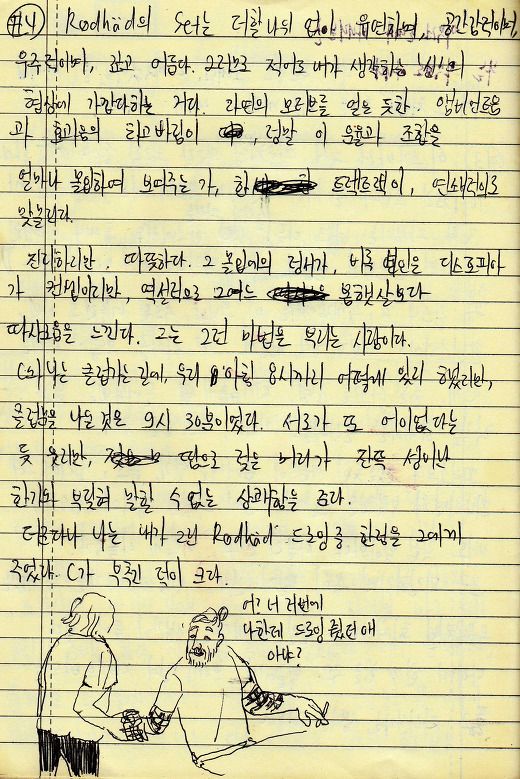 #4) Rødhåd의 Set는 더할 나위 없이 유연하며, 공간감적이며,
우주적이며, 깊고 어둡다. 그러므로 적어도 내가 생각하는 '심심'의
협상에 가깝다하는 거다. 라틴의 모티브를 얻은 듯한 앰비언트음
과 효과음의 휘고바림이, 정말 이 우울과 조합을
얼마나 몰입하여 보여주는 가, 한 트랙트랙이, 연쇄적으로
맞물린다.
진지하지만, 따뜻하다. 그 몰입에의 정서가, 비록 본인은 디스토피아
가 컨셉이지만, 역설적으로 그 어느 봄햇살보다
따사로움을 느낀다. 그는 그런 마법을 부리는 사람이다.
C와 나는 클럽가는 길에, 우리 아침 8시까지 어떻게 있지 했지만,
클럽을 나온 것은 9시 30분이었다. 서로가 또 어이없다는
듯 웃지만, 땀으로 젖은 머리가 진득 성이난
한기와 부딪혀 말할 수 없는 상쾌함을 준다.
더군다나 나는 내가 그린 Rødhåd 드로잉중 한점을 그에게
주었다. C가 부추긴 덕이 크다.
어? 너 저번에
나한테 드로잉 줬던 애
아냐?